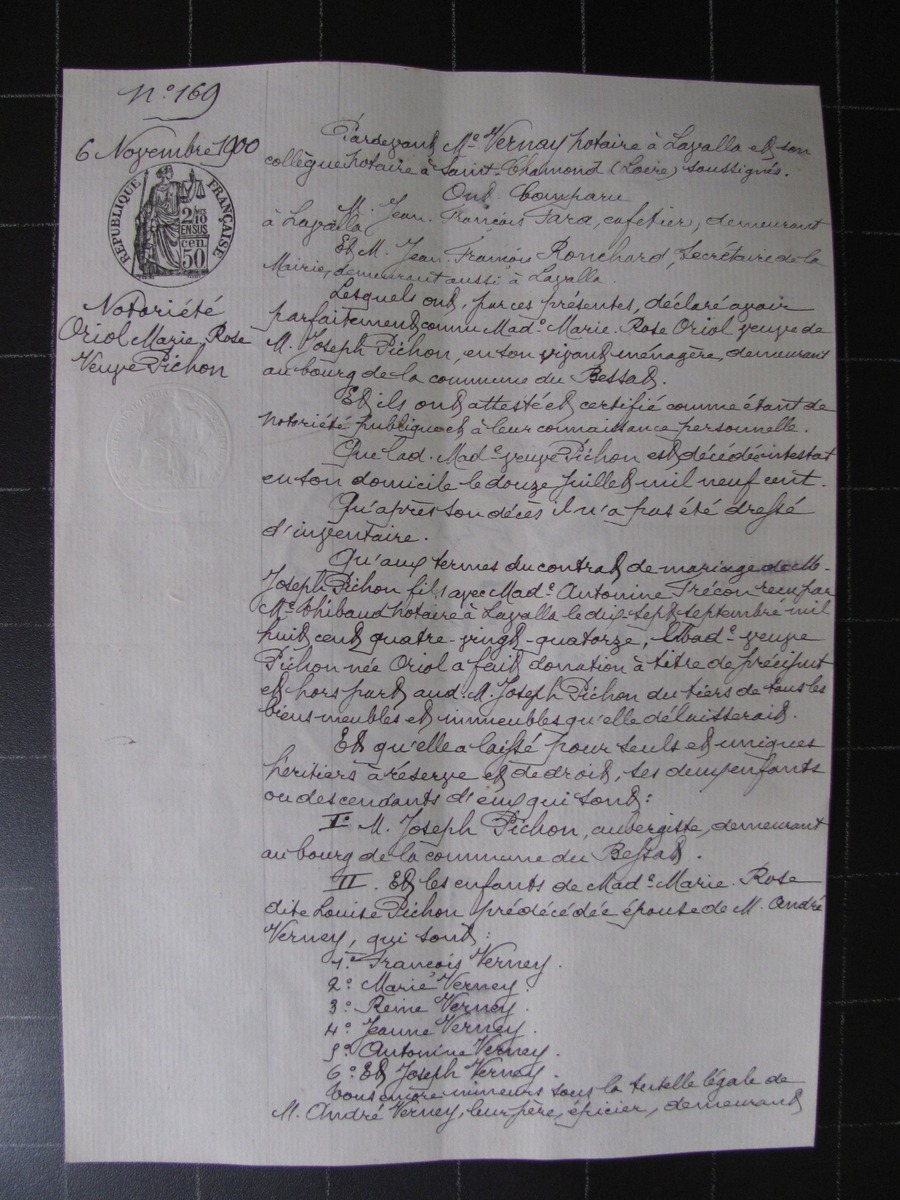 N° 169
6 Novembre 1900
RÉPUBLIQUE FRANÇAISE
2/10
EN SUS
50 cen.
Notoriété
Oriol Marie Rose
Veuve Pichon
Pardevant Me Vernay notaire à Lavalla et son
collègue notaire à Saint-Chamond (Loire) soussignés.
Ont Comparu
M. Jean François Jara, cafetier, demeurant
à Lavalla
Et M. Jean François Ronchard, Secrétaire de la
Mairie, demeurant aussi à Lavalla.
Lesquels ont, par ces présentes, déclaré avoir
parfaitement connu Made Marie Rose Oriol veuve de
M. Joseph Pichon, en son vivant ménagère, demeurant
au bourg de la commune du Bessat.
Et ils ont attesté et certifié comme étant de
notoriété publique et à leur connaissance personnelle.
Que lad. Made veuve Pichon est décédée intestat
en son domicile le douze Juillet mil neuf cent.
Qu'après son décès il n'a pas été dressé
d'inventaire.
Qu'aux termes du contrat de mariage de M.
Joseph Pichon fils avec Made Antonine Trécon reçu par
Me Thibaud notaire à Lavalla le dix-sept septembre mil
huit cent quatre-vingt-quatorze, lad. veuve
Pichon née Oriol a fait donation à titre de préciput
et hors part aud. M. Joseph Pichon du tiers de tous les
biens meubles et immeubles qu'elle délaisserait.
Et qu'elle a laissé pour seuls et uniques
héritiers à réserve et de droit, ses deux enfants
ou descendants d'eux qui sont :
I° M. Joseph Pichon, aubergiste, demeurant
au bourg de la commune du Bessat.
II. Et les enfants de Made Marie Rose
dite Louise Pichon prédécédée épouse de M. André
Verney, qui sont :
1° François Verney.
2° Marie Verney.
3° Reine Verney.
4° Jeanne Verney.
5° Antonine Verney.
6° Et Joseph Verney.
Tous encore mineurs sous la tutelle légale de
M. André Verney, leur père, épicier, demeurant